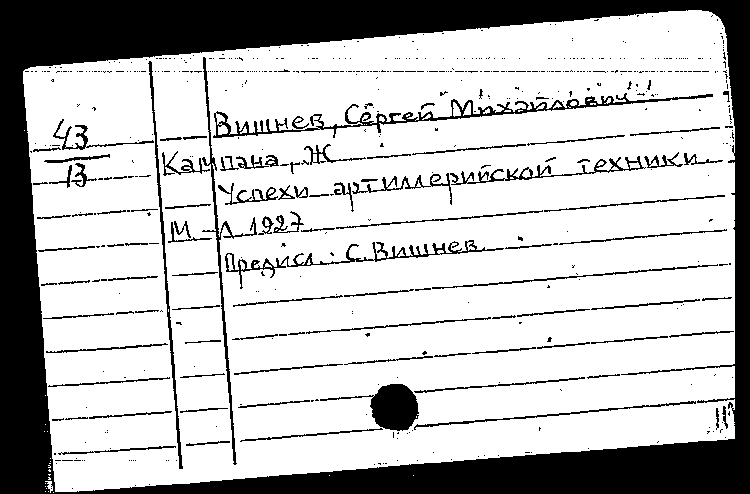 43
13
Вишнев, Сергей Михайлович
Кампана, Ж
Успехи артиллерийской техники.
М.-Л 1927
Предисл.: С. Вишнев.